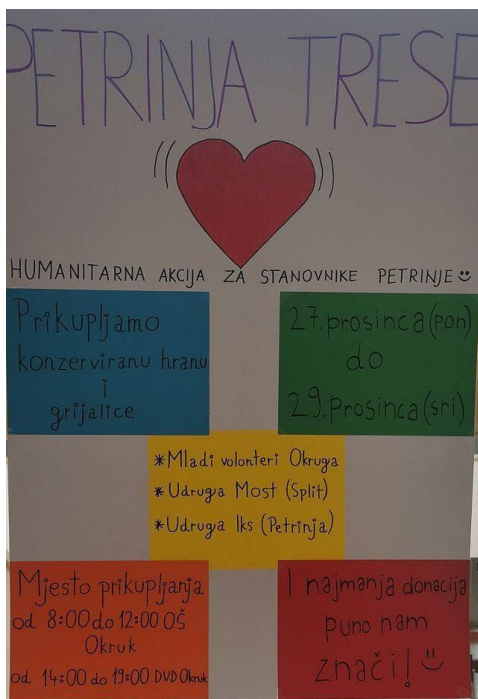 PETRINJA TRESE
HUMANITARNA AKCIJA ZA STANOVNIKE PETRINJE
Prikupljamo
konzerviranu hranu
i
grijalice
27. prosinca (pon)
do
29. Prosinca (sri)
*Mladi volonteri Okruga
*Udruga Most (Split)
*Udruga Iks (Petrinja)
Mjesto prikupljanja
od 8:00 do 12:00 OŠ
Okruk
od 14:00 do 19:00 DVD Okruk
I najmanja donacija
puno nam
znači!